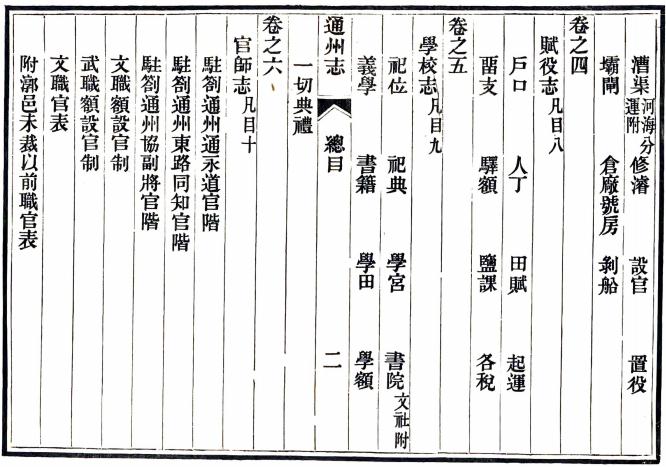 漕渠河海分運附 修濬 設官 置役
壩閘 倉廠號房 剝船
卷之四
賦役志凡目八
戶口 人丁 田賦 起運
畱支 驛額 鹽課 各稅
卷之五
學校志凡目九
祀位 祀典 學宮 書院文社附
義學 書籍 學田 學額
通州志 總目 二
一切典禮
卷之六
官師志凡目十
駐劄通州通永道官階
駐劄通州東路同知官階
駐劄通州協副將官階
文職額設官制
武職額設官制
文職官表
附漷邑未裁以前職官表